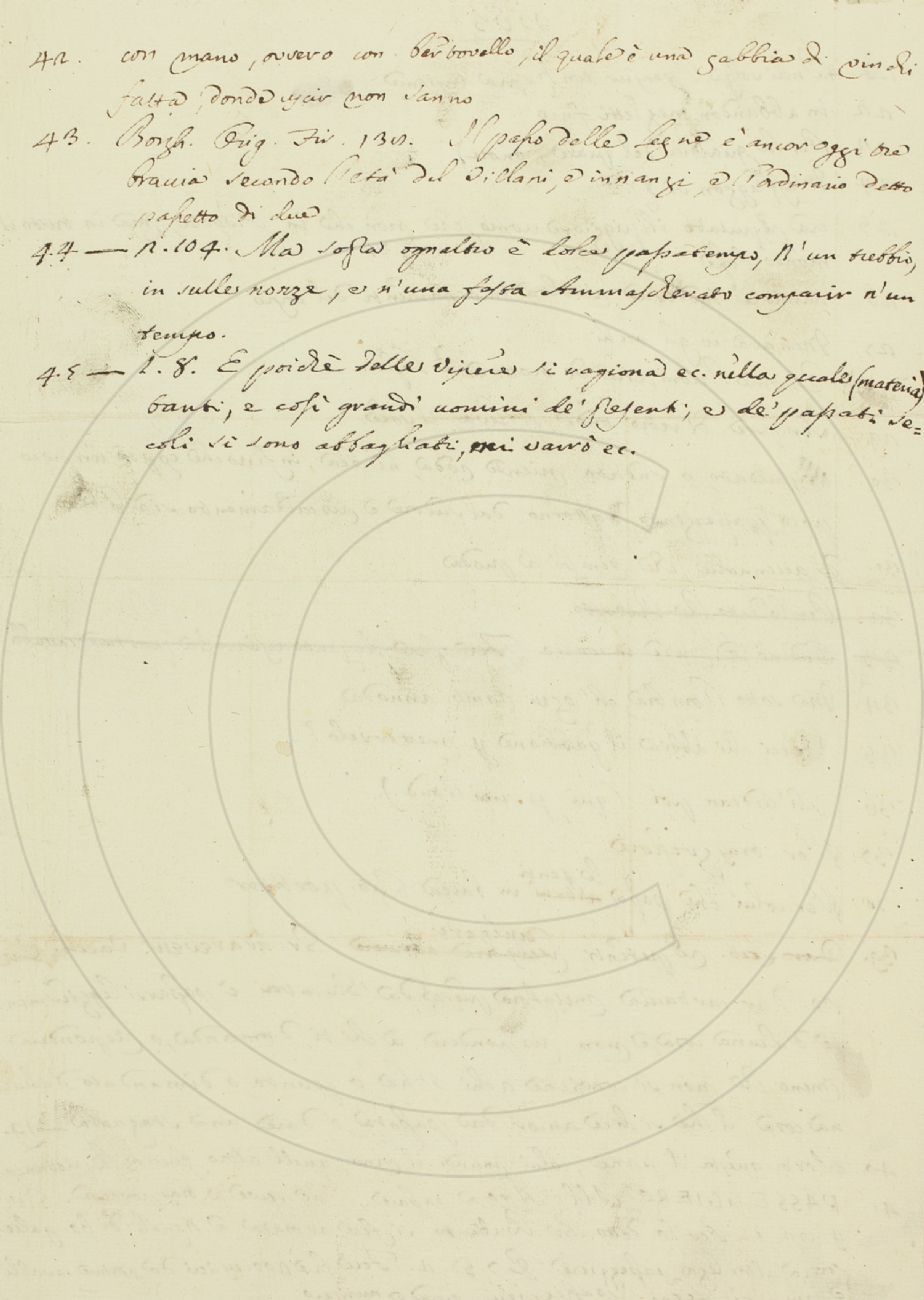 42. con mano, ovvero con bertovello, il quale è una gabbia di vinchi
fatta, donde uscir non sanno
43. Borgh. Orig. Fir. 131. Il passo delle Legne è ancor oggi tre
braccia secondo l'età del Villani, e innanzi, e l'ordinario detto
passetto di due
44 — n. 104. Ma sopra ogn'altro è dolce passatempo, N' un trebbio,
in sulle nozze, e n'una festa Ammascherato comparir n'un
tempo.
45 — 1. 8. E poichè delle vipere si ragiona ec. nella quale (materia)
tanti, e così grandi uomini de' presenti, e de' passati se=
coli si sono abbagliati, mi varrò ec.